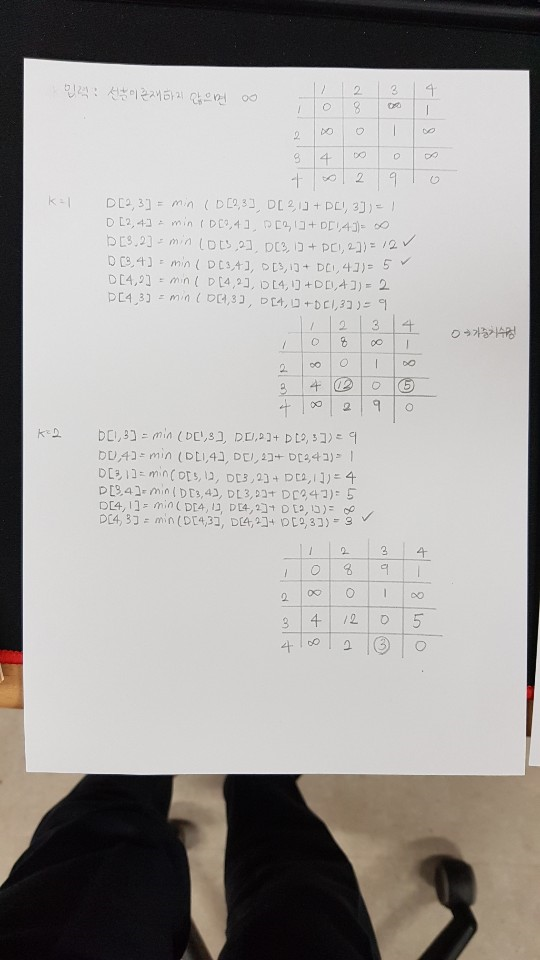 입력 : 선분이 존재하지 않으면 ∞
1 2 3 4
1 0 8 ∞ 1
2 ∞ 0 1 ∞
3 4 ∞ 0 ∞
4 ∞ 2 9 0
k=1 D[2,3] = min ( D[2,3], D[2,1] + D[1,3]) = 1
D[2,4] = min ( D[2,4], D[2,1] + D[1,4]) = ∞
D[3,2] = min ( D[3,2], D[3,1] + D[1,2]) = 12 ✓
D[3,4] = min ( D[3,4], D[3,1] + D[1,4]) = 5 ✓
D[4,2] = min ( D[4,2], D[4,1] + D[1,4]) = 2
D[4,3] = min ( D[4,3], D[4,1] + D[1,3]) = 9
1 2 3 4
1 0 8 ∞ 1
2 ∞ 0 1 ∞
3 4 12 0 5
4 ∞ 2 9 0
k=2 D[1,3] = min ( D[1,3], D[1,2] + D[2,3]) = 9
D[1,4] = min ( D[1,4], D[1,2] + D[2,4]) = 1
D[3,1] = min ( D[3,1], D[3,2] + D[2,1]) = 4
D[3,4] = min ( D[3,4], D[3,2] + D[2,4]) = 5
D[4,1] = min ( D[4,1], D[4,2] + D[2,1]) = ∞
D[4,3] = min ( D[4,3], D[4,2] + D[2,3]) = 3 ✓
1 2 3 4
1 0 8 9 1
2 ∞ 0 1 ∞
3 4 12 0 5
4 ∞ 2 3 0